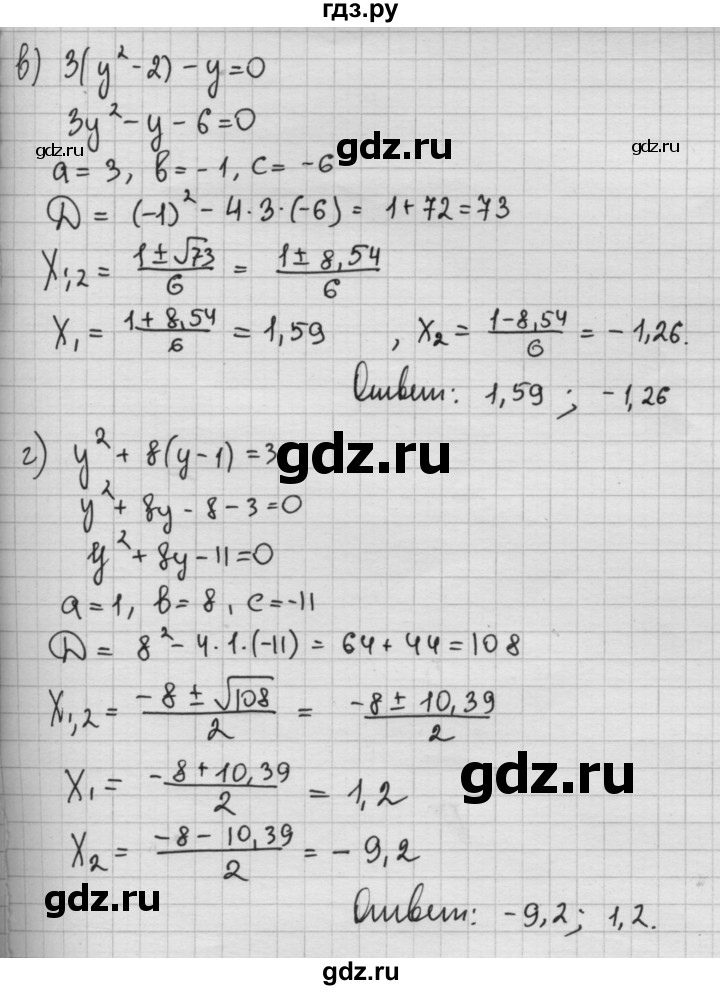 гдз.ру
в) 3(y² - 2) - y = 0
3y² - y - 6 = 0
gdz.ru
gdz.ru
gdz.ru
a = 3, в = - 1, c = - 6
D = (-1)² - 4·3·(-6) = 1 + 72 = 73
X₁,₂ = (1 ± √73)/6 = (1 ± 8,54)/6
X₁ = (1 + 8,54)/6 = 1,59 , X₂ = (1 - 8,54)/6 = - 1,26.
Ответ: 1,59 ; - 1,26
г) y² + 8(y - 1) = 3
gdz.ru
y² + 8y - 8 - 3 = 0
y² + 8y - 11 = 0
a = 1, в = 8, c = -11
D = 8² - 4·1·(-11) = 64 + 44 = 108
X₁,₂ = (-8 ± √108)/2 = (-8 ± 10,39)/2
X₁ = (-8 + 10,39)/2 = 1,2
gdz.ru
X₂ = (-8 - 10,39)/2 = - 9,2
gdz.ru
Ответ: -9,2; 1,2.
gdz.ru